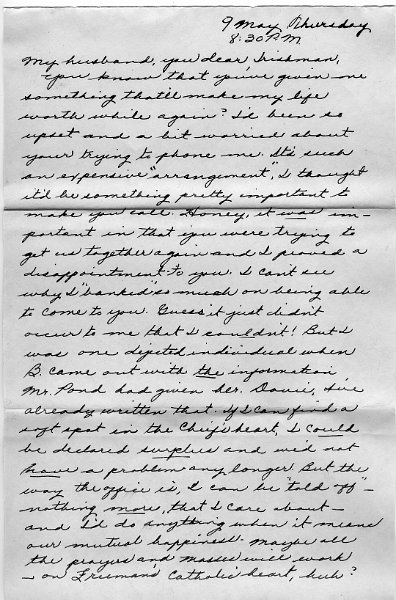 9 May, Thursday
8:30 P.M.
My husband, you dear, Irishman,
You know that you've given me
something that'll make my life
worth while again? I'd been so
upset and a bit worried about
your trying to phone me. It's such
an expensive "arrangement", I thought
it'd be something pretty important to
make you call. Honey, it was im-
portant in that you were trying to
get us together again and I proved a
disappointment to you. I can't see
why I "banked" so much on being able
to come to you. Guess it just didn't
occur to me that I couldn't! But I
was one dejected individual when
B. came out with the information
Mr. Pond had given her. Davie, I've
already written that. If I can find a
soft spot in the Chief's heart, I could
be declared surplus and we'd not
have a problem any longer. But the
way the office is, I can be "told off" -
nothing more, that I care about -
and I'd do anything when it means
our mutual happiness. Maybe all
the prayers and masses will work
- on Freeman's Catholic heart, huh?